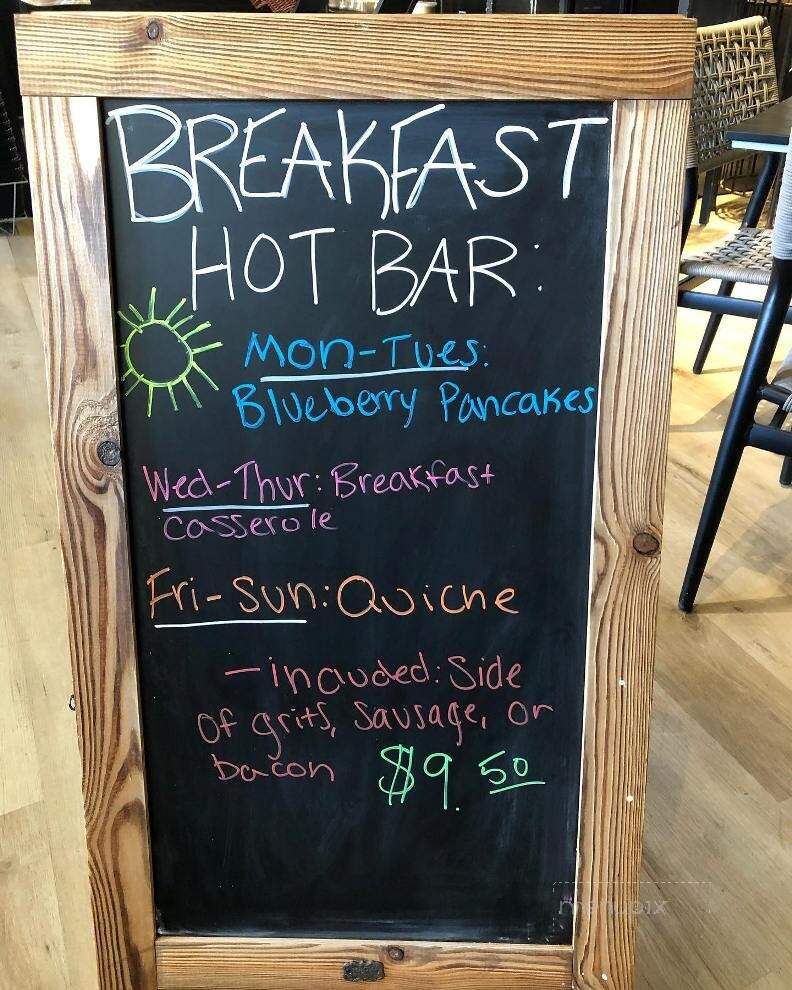 BREAKFAST
HOT BAR:
Mon-Tues:
Blueberry Pancakes
Wed-Thur: Breakfast
casserole
Fri-Sun: Quiche
- incauded: Side
of grits, Sausage, or
bacon $9.50
menupix